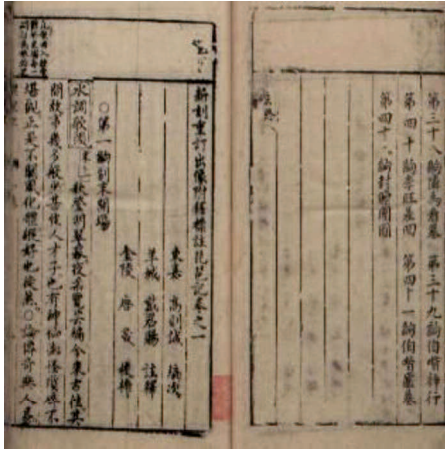 第三十八齣 第三十九齣伯喈行
第四十齣李旺回 第四十一齣伯喈廬墓
第四十二齣封贈團圓
新刻重訂出像附釋標註琵琶記卷之一
東嘉 高則誠 編次
羊城 戴君賜 註釋
金陵 唐晟 繡梓
○第一齣副末開場
水調歌頭 末上 秋燈明翠幕夜案覽芸編今來古往其
間故事幾多般少甚佳人才子也有神仙幽怪瑣碎不
堪觀正是不關風化體縱好也徒然○論傳奇樂人易